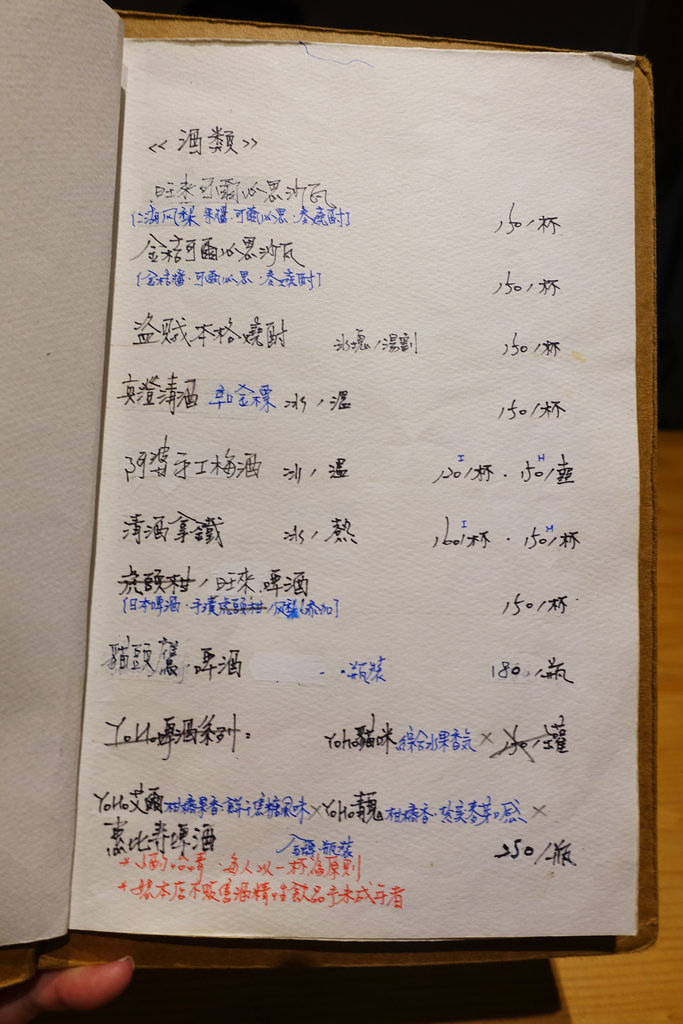 <<酒類>>
旺來可爾必思沙瓦
(土鳳梨果醬·可爾必思·麥燒酎) 150/杯
金桔可爾必思沙瓦
(金桔醬·可爾必思·麥燒酎) 150/杯
盜賊本格燒酎 冰塊/湯割 150/杯
真澄清酒 辛口金標 冰/溫 150/杯
阿婆手工梅酒 冰/溫 120/杯·150/壺
清酒拿鐵 冰/熱 160/杯·150/杯
虎頭柑/旺來啤酒
(日本啤酒·手漬虎頭柑/鳳梨 添加) 150/杯
貓頭鷹·啤酒 ·瓶裝 180/瓶
YoHo啤酒系列: YoHo貓咪 綜合水果香氣 × 150/罐
YoHo艾爾 柑橘果香·鮮 焦糖風味 × YoHo 柑橘香· 麥芽口感 ×
惠比壽啤酒 瓶裝 250/瓶
*酒 每人以一杯為原則
*本店不販售酒精性飲品予未成年者